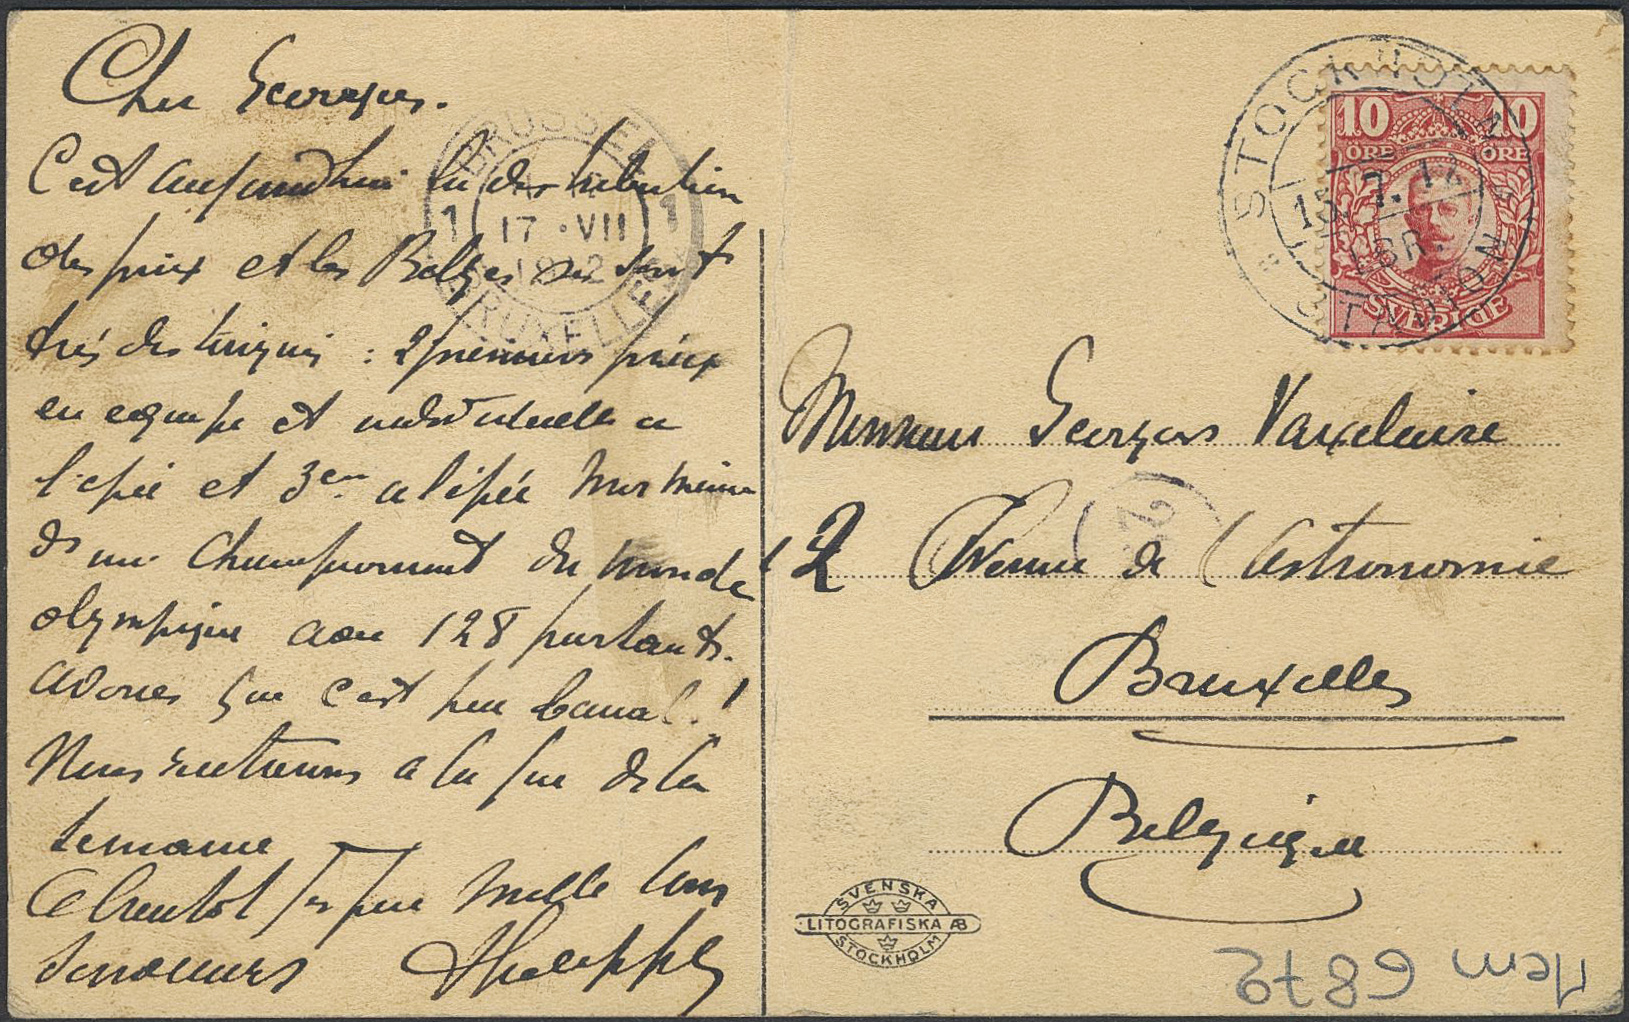 Cher Georges.
C'est aujourd'hui la distribution
des prix et les Belges se sont
très distingués : 2 premiers prix
en equipe et individuelle a
l'épée et 3em a l'épée moi meme
d'un championnat du monde
olympique avec 128 partants.
avoues que c'est peu banal !
Nous rentrons a la fin de la
semaine
A bientot mille bons
Philippe
Monsieur Georges Vaxelaire
2 Avenue de l'Astronomie
Bruxelles
Belgique
STOCKHOLM
15.7.12
LBR.
STADION
10 10
ÖRE ÖRE
SVERIGE
BRUSSEL
1 17 · VII 1
1912
BRUXELLES
SVENSKA
LITOGRAFISKA AB
STOCKHOLM
Mem 6872